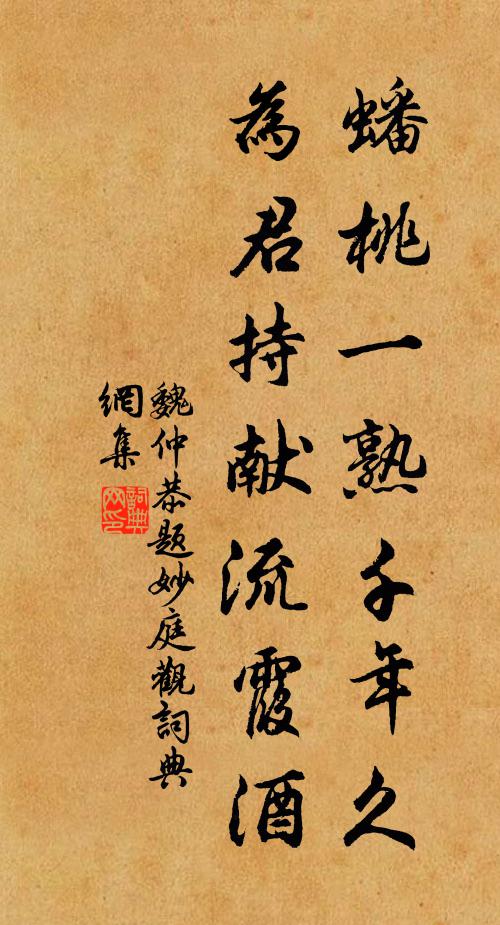 蟠桃一熟千年久
為君持献流霞酒
魏仲恭题妙庭觀詞典
網集
詞典网印